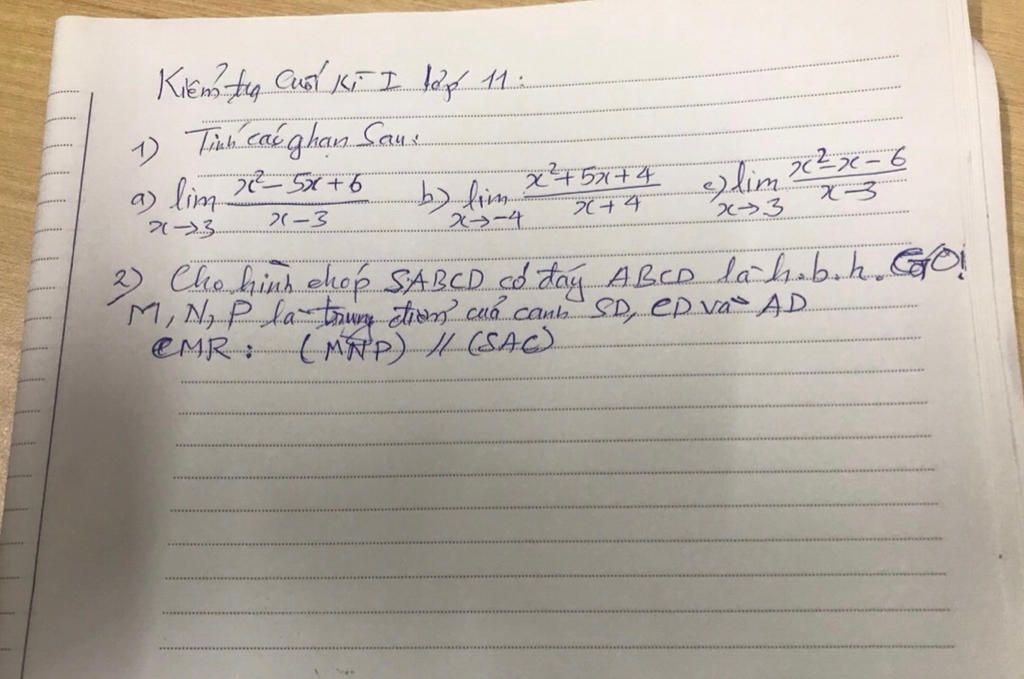 Kiểm tra Cuối Kì I lớp 11:
1) Tính các ghạn Sau:
a) lim x→3 (x² - 5x + 6)/(x - 3) b) lim x→-4 (x² + 5x + 4)/(x + 4) c) lim x→3 (x² - x - 6)/(x - 3)
2) Cho hình chóp S.ABCD có đáy ABCD là h.b.h.
M, N, P là trung điểm của cạnh SD, CD và AD
CMR: (MNP) // (SAC)